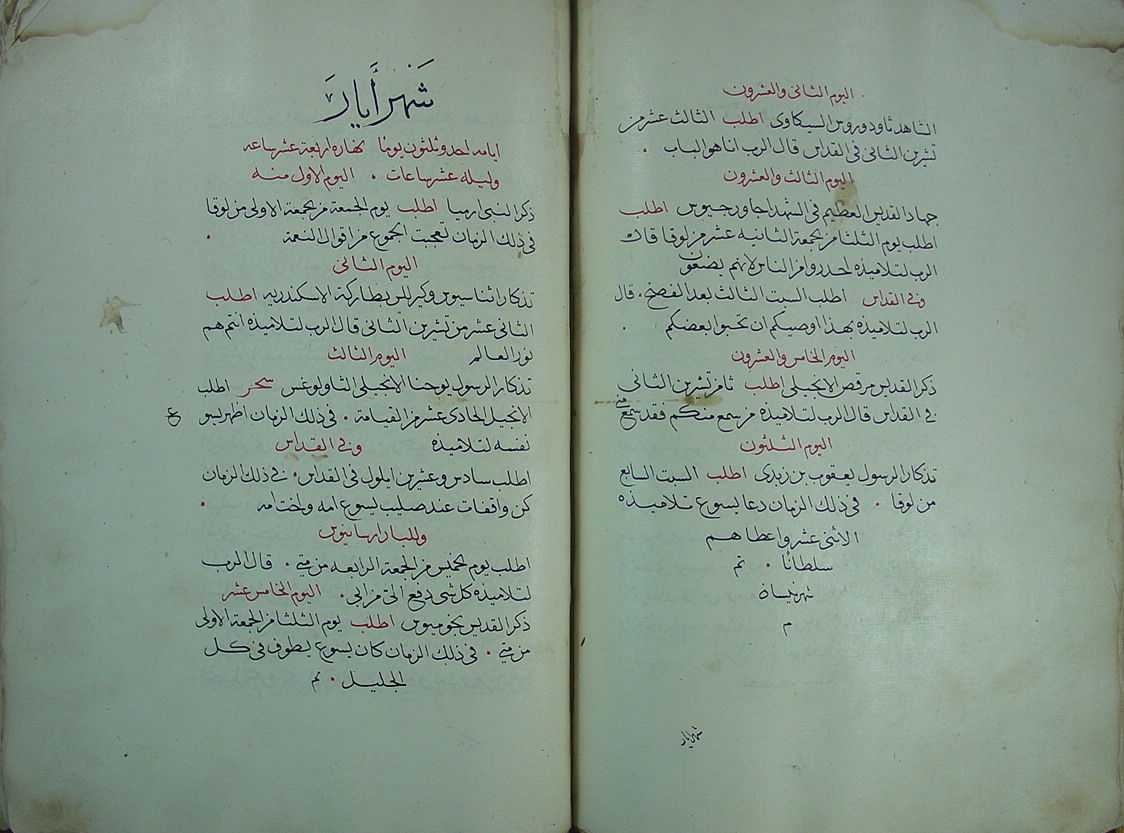 اليوم الثاني والعشرون
الشاهد ثاودوروس السيكاوى اطلب الثالث عشر من
تشرين الثاني في القداس قال الرب انا هو الباب .
اليوم الثالث والعشرون
جهاد القديس العظيم في الشهدا جاورجيوس اطلب
اطلب يوم الثلثا من الجمعة الثانيه عشر من لوقا قال
الرب لتلاميذه احدروا من الناس لانهم يضعون
وفي القداس اطلب السبت الثالث بعد الفصح . قال
الرب لتلاميذه بهذا اوصيكم ان تحبوا بعضكم .
اليوم الخامس والعشرون
ذكر القديس مرقص الانجيلى اطلب ثامن تشرين الثاني
في القداس قال الرب لتلاميذه من سمع منكم فقد سمع مني
اليوم الثلثون
تذكار الرسول يعقوب بن زبدى اطلب السبت السابع
من لوقا . في ذلك الزمان دعا يسوع تلاميذه
الاثني عشر واعطاهم
سلطانا . تم
شهر نيسان
م
شهر ايار
شهر أيار
ايامه احد وثلثون يوما نهاره اربعة عشر ساعه
وليله عشر ساعات . اليوم الاول منه
ذكر النبي ارميا اطلب يوم الجمعة من الجمعة الاولى من لوقا
في ذلك الزمان تعجبت الجموع من اقوال النعمة .
اليوم الثاني
تذكار اثناسيوس وكيرلس بطاركة الاسكندريه اطلب
الثاني عشر من تشرين الثاني قال الرب لتلاميذه انتم هم
نور العالم اليوم الثالث
تذكار الرسول يوحنا الانجيلى الثاولوغس سحر اطلب
الانجيل الحادى عشر من القيامة . في ذلك الزمان اظهر يسو ع
نفسه لتلاميذه وفي القداس
اطلب سادس وعشرين ايلول في القداس . في ذلك الزمان
كن واقفات عند صليب يسوع امه واخت امه .
وللبار ارسانيوس
اطلب يوم الخميس من الجمعة الرابعه من متي . قال الرب
لتلاميذه كل شى دفع الي من ابي . اليوم الخامس عشر
ذكر القديس بخوميوس اطلب يوم الثلثا من الجمعة الاولى
من متي . في ذلك الزمان كان يسوع يطوف في كل
الجليل . تم